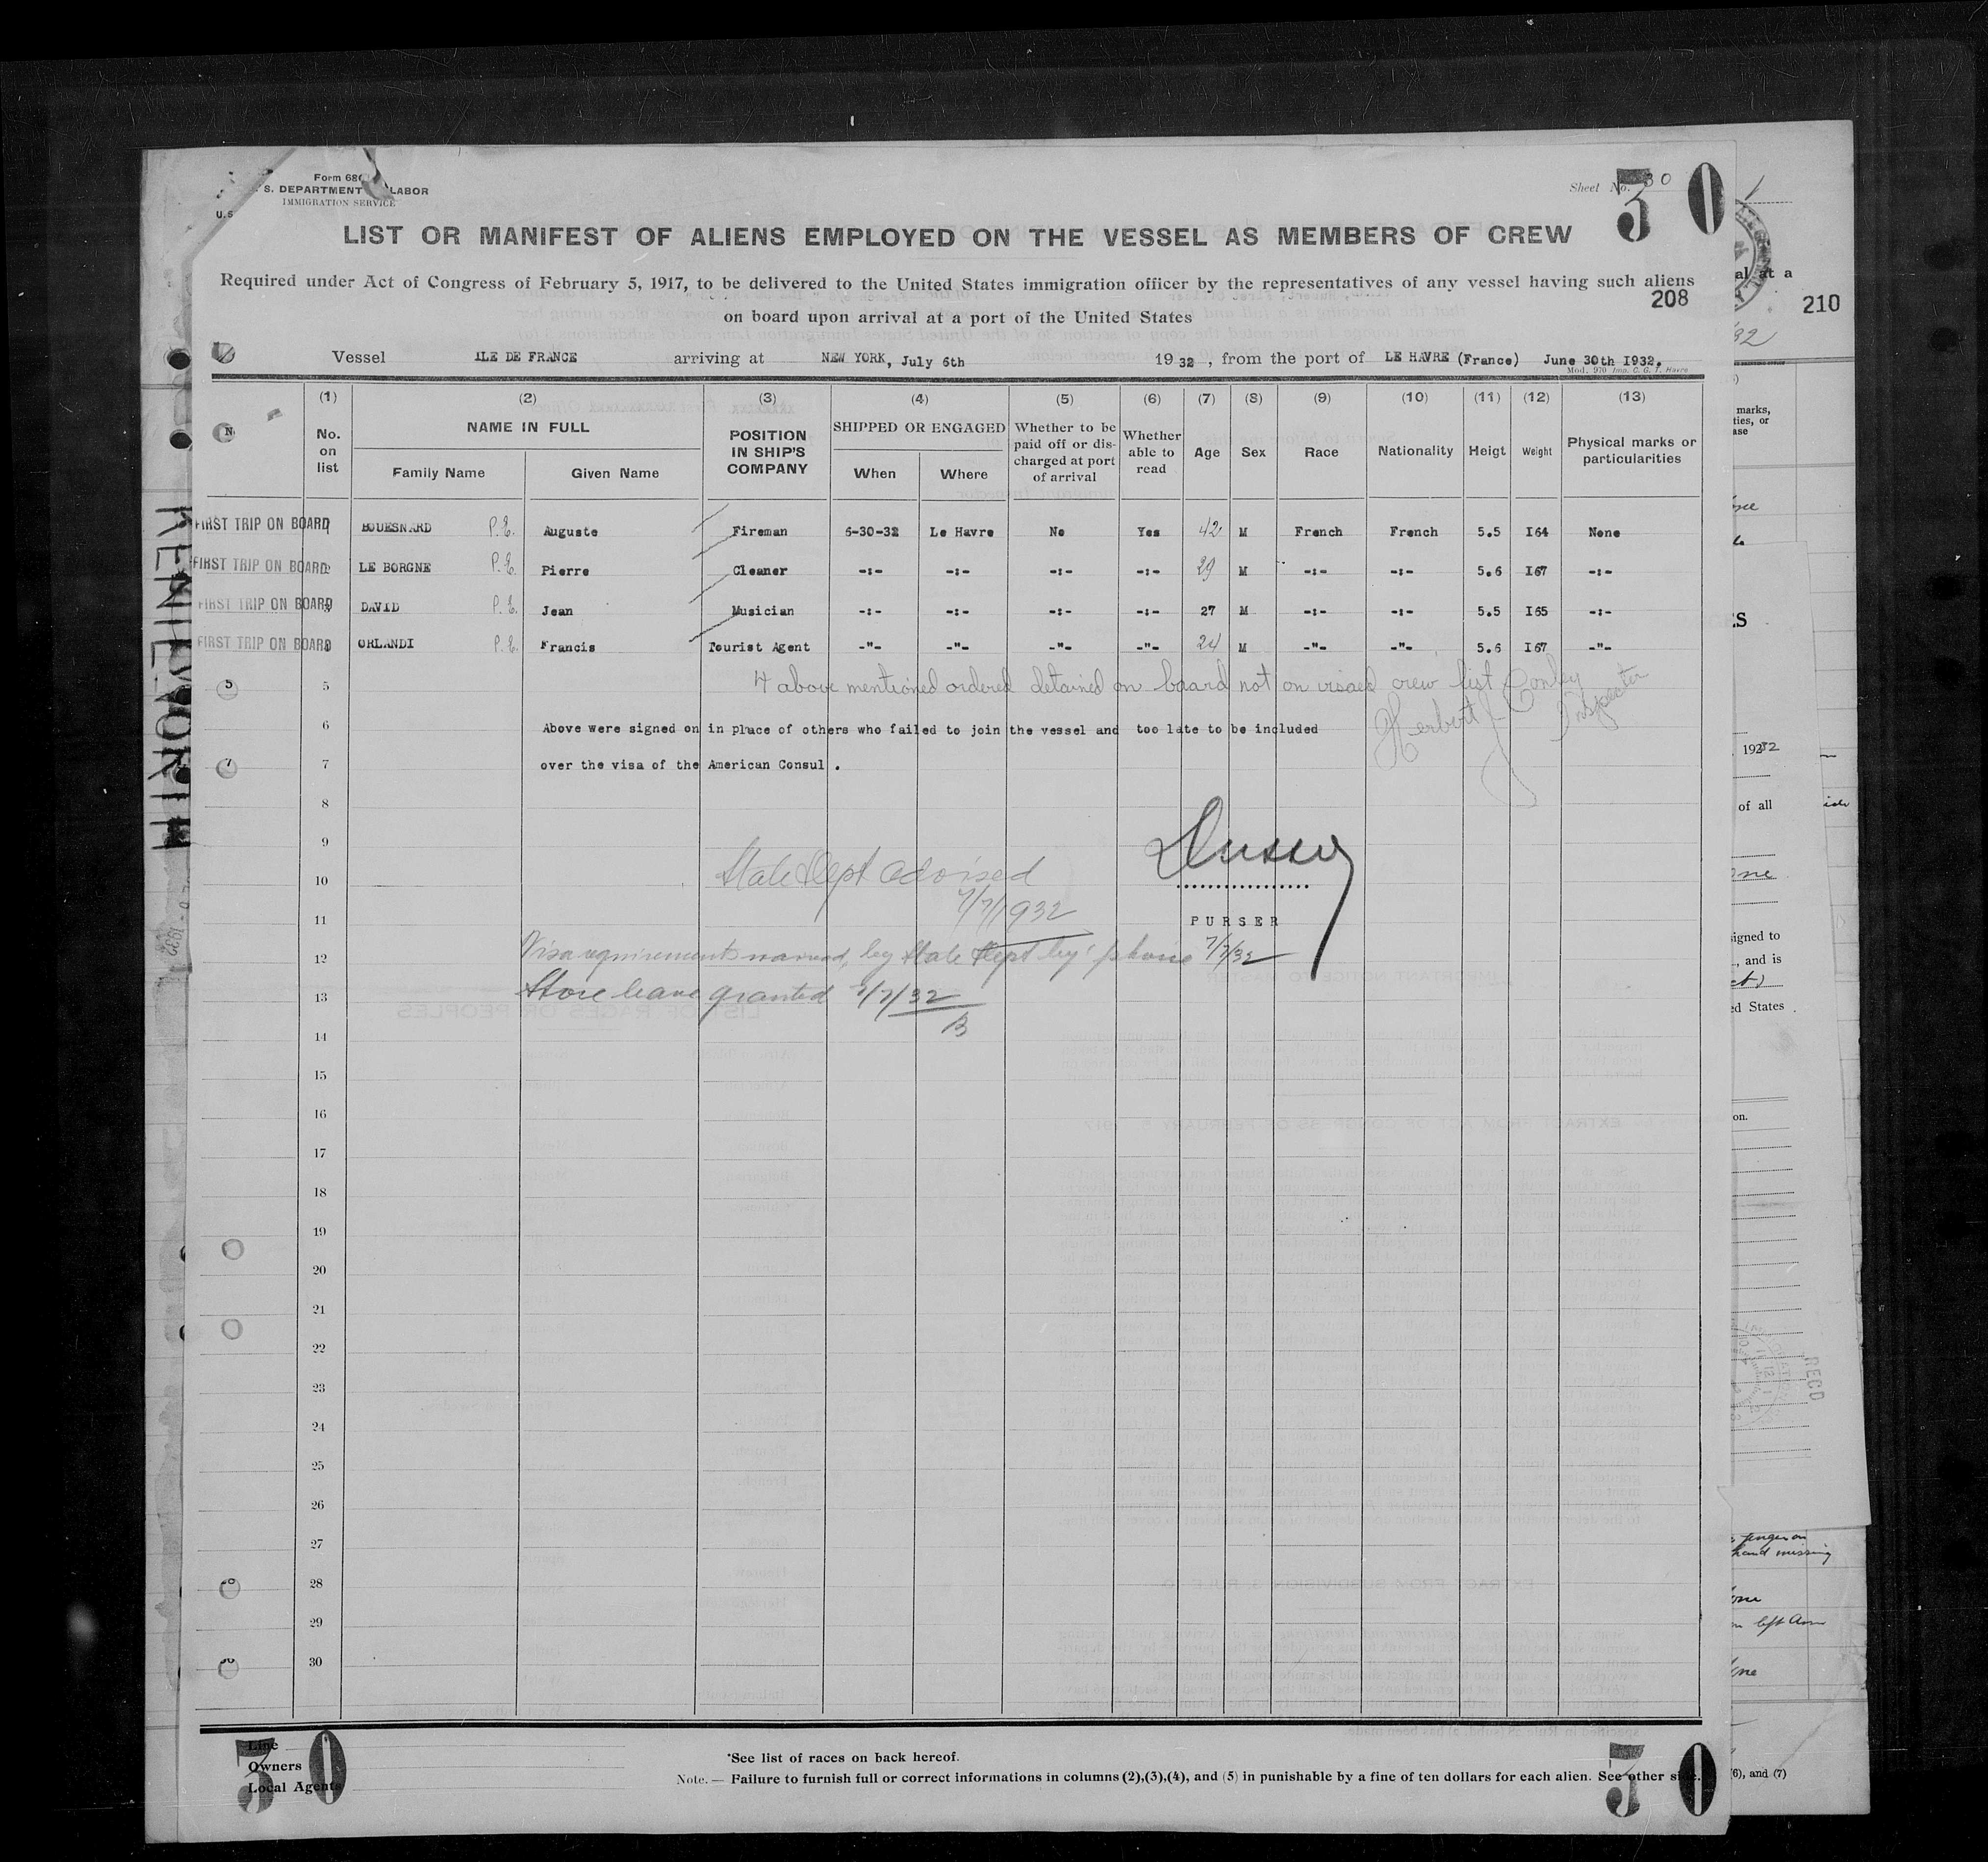 Form 68
S. DEPARTMENT LABOR
IMMIGRATION SERVICE
U.S
Sheet No. 30
30
LIST OR MANIFEST OF ALIENS EMPLOYED ON THE VESSEL AS MEMBERS OF CREW
Required under Act of Congress of February 5, 1917, to be delivered to the United States immigration officer by the representatives of any vessel having such aliens
on board upon arrival at a port of the United States
208
210
Vessel ILE DE FRANCE arriving at NEW YORK, July 6th 1932, from the port of LE HAVRE (France) June 30th I932.
Mod. 970 Imp. C. G. T. Havre
(1) (2) (3) (4) (5) (6) (7) (8) (9) (10) (11) (12) (13)
No. on list
NAME IN FULL
Family Name Given Name
POSITION IN SHIP'S COMPANY
SHIPPED OR ENGAGED
When Where
Whether to be paid off or discharged at port of arrival
Whether able to read
Age Sex Race Nationality Heigt Weight
Physical marks or particularities
FIRST TRIP ON BOARD 1 BOUESNARD P.E. Auguste Fireman 6-30-32 Le Havre No Yes 42 M French French 5.5 I64 None
FIRST TRIP ON BOARD 2 LE BORGNE P.E. Pierre Cleaner -:- -:- -:- -:- 29 M -:- -:- 5.6 I67 -:-
FIRST TRIP ON BOARD 3 DAVID P.E. Jean Musician -:- -:- -:- -:- 27 M -:- -:- 5.5 I65 -:-
FIRST TRIP ON BOARD 4 ORLANDI P.E. Francis Tourist Agent -"- -"- -"- -"- 24 M -"- -"- 5.6 I67 -"-
5 4 above mentioned ordered detained on board not on visaed crew list Herbert Conley Inspector
6 Above were signed on in place of others who failed to join the vessel and too late to be included
7 over the visa of the American Consul .
8
9
10 State Dept advised
7/7/1932
11 PURSER
12 Visa requirements waived, by State Dept by phone 7/7/32
13 Shore leave granted 7/7/32
B
14
15
16
17
18
19
20
21
22
23
24
25
26
27
28
29
30
30
Line
Owners
Local Agents
*See list of races on back hereof.
Note. — Failure to furnish full or correct informations in columns (2),(3),(4), and (5) in punishable by a fine of ten dollars for each alien. See other side.
30
KENILWORTH
al at a
marks,
ties, or
ase
1932
of all
igned to
, and is
ed States
on.
RECD
finger on
hand missing
left arm
(6), and (7)